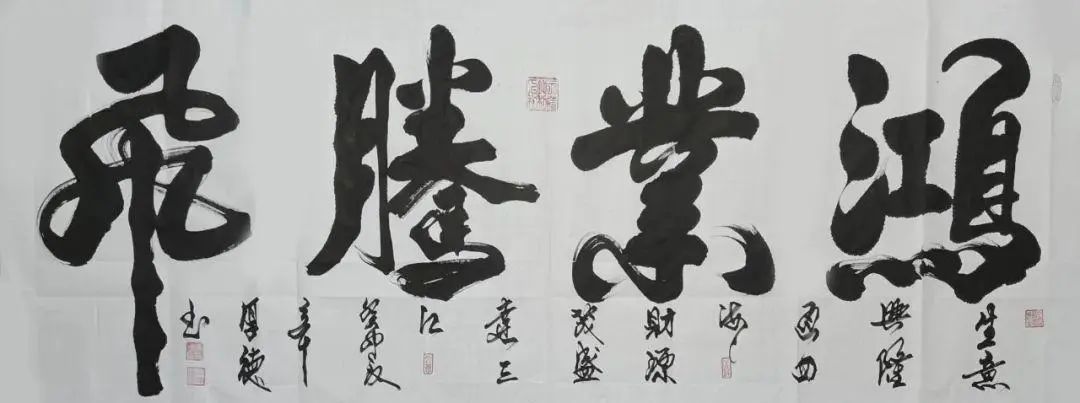 鴻業騰飛
生意
興隆
通四
海
財源
茂盛
達三
江
厚德